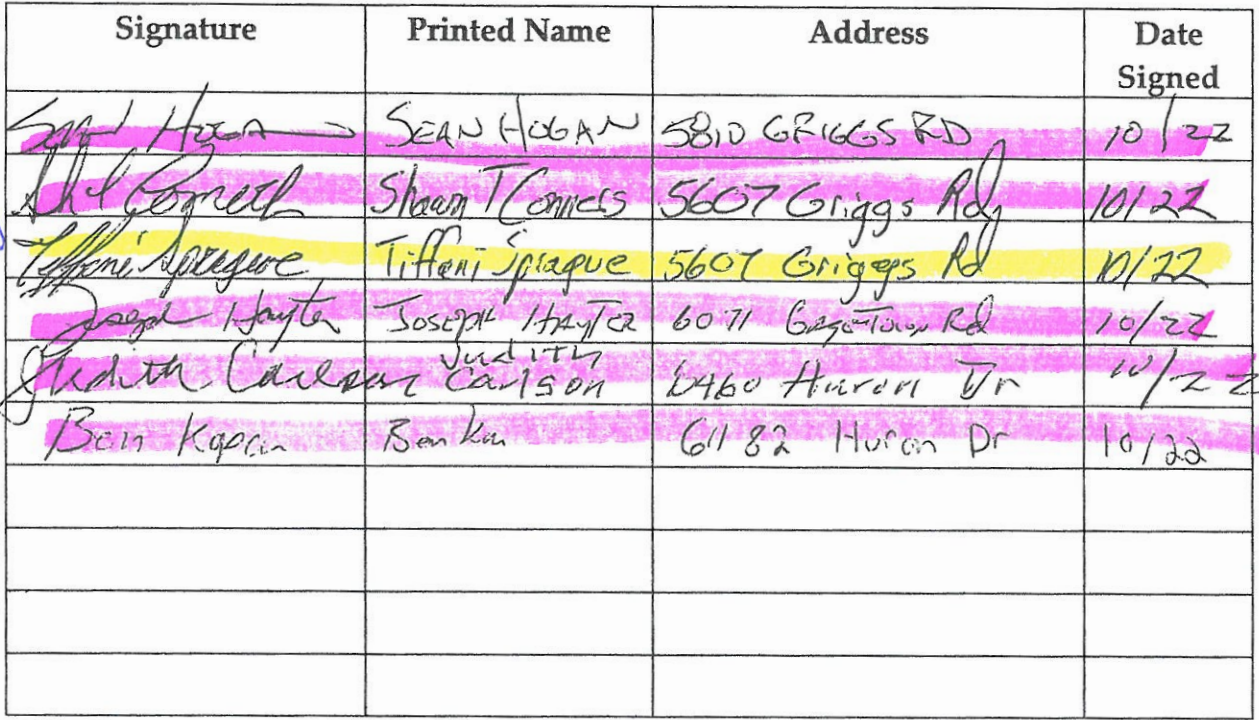 Signature Printed Name Address Date Signed
Sean Hogan SEAN HOGAN 5810 GRIGGS RD 10/22
Shawn T Conners 5607 Griggs Rd 10/22
Tiffani Sprague Tiffani Sprague 5607 Griggs Rd 10/22
Joseph Hayter JOSEPH HAYTER 6071 Rd 10/22
Judith Carlson Judith Carlson 6460 Huron Dr 10/22
Ben Ben 6182 Huron Dr 10/22